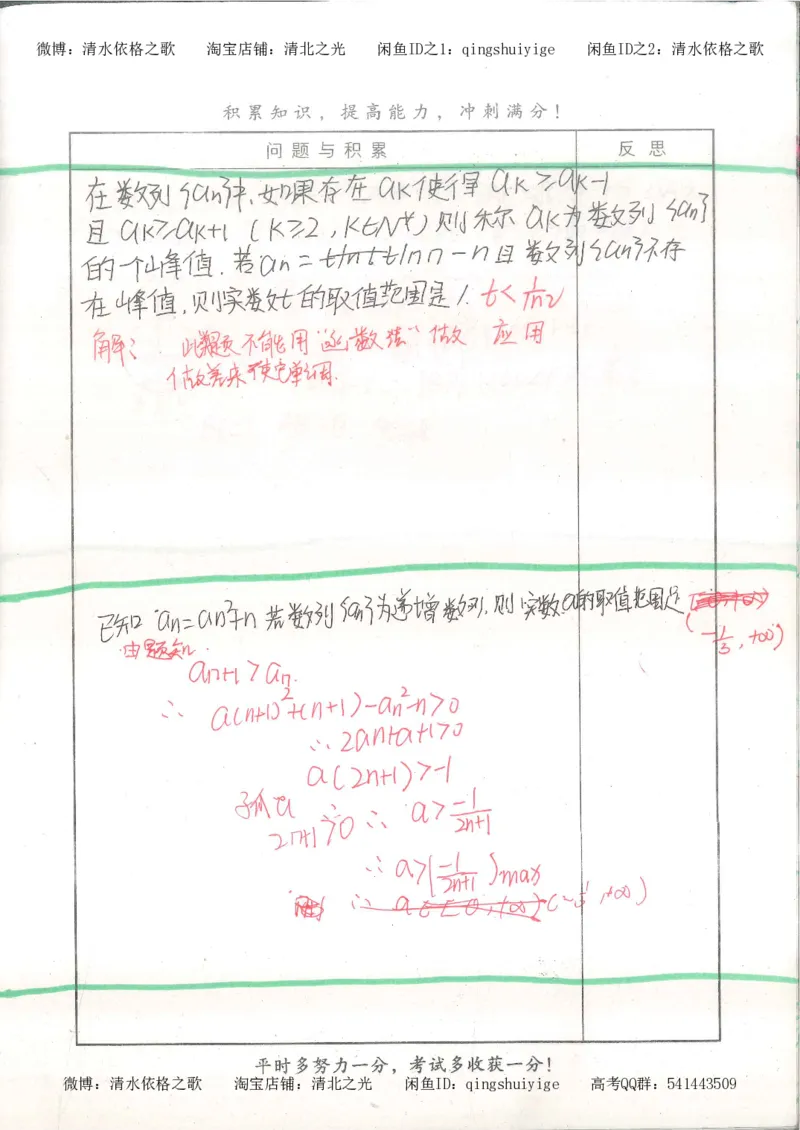 微博：清水依格之歌 淘宝店铺：清北之光 闲鱼ID之1：qingshuiyige 闲鱼ID之2：清水依格之歌
积累知识，提高能力，冲刺满分！
问题与积累 反思
在数列{an}中，如果存在ak使得ak≥ak-1
且ak≥ak+1（k≥2，k∈N*）则称ak为数列{an}
的一个峰值．若an=tlnn-n且数列{an}不存
在峰值，则实数t的取值范围是/. t<1/ln2
解： 此题不能用“函数法”做 应用
做差来 单调
已知an=an²+n若数列{an}为递增数列，则实数a的取值范围是
(-1/3，+∞)
由题知
an+1>an．
∴ a(n+1)²+(n+1)-an²-n>0
∴2an+a+1>0
a(2n+1)>-1
2n+1>0 ∴ a>-1/2n+1
∴a>(-1/2n+1)max
∴ a∈ (-1/3，+∞)
平时多努力一分，考试多收获一分！
微博：清水依格之歌 淘宝店铺：清北之光 闲鱼ID：qingshuiyige 高考QQ群：541443509